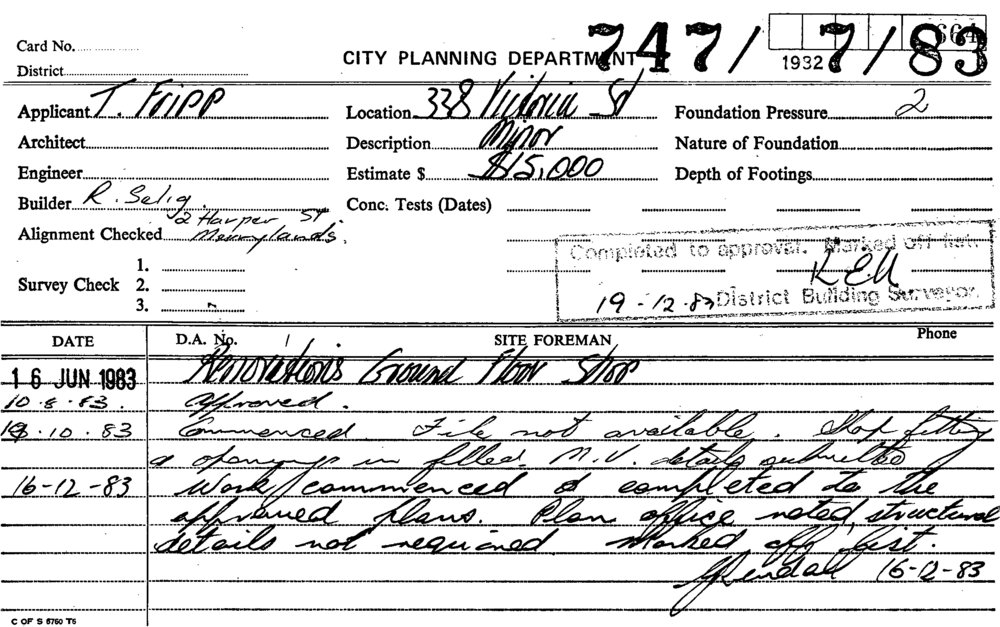 Card No.
CITY PLANNING DEPARTMENT 747/ 7/83
1932
664
District
Applicant T. Fripp Location 338 Victoria St Foundation Pressure 2
Architect Description Minor Nature of Foundation
Engineer Estimate $ $15,000 Depth of Footings
Builder R. Selig. Conc. Tests (Dates)
2 Harper St
Alignment Checked Merrylands.
Completed to approval. Marked off list.
1.
Survey Check 2.
3.
19-12-83 District Building Surveyor.
DATE D.A. No. SITE FOREMAN Phone
16 JUN 1983 Renovations Ground Floor Shop
10.8.83. Approved.
10.83 Commenced. File not available. Shop fitting
& openings in filled. M.V. details submitted
16-12-83 Work commenced & completed to the
approved plans. Plan office noted, structural
details not required. Marked off list.
16-12-83
C OF S 5760 T6